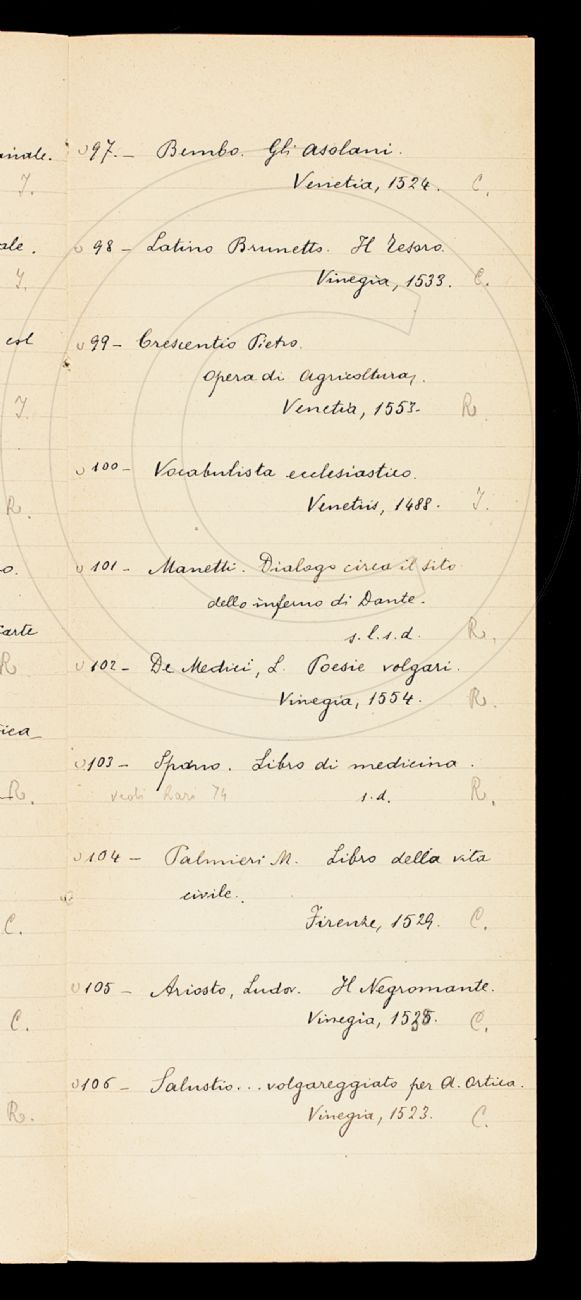 anale.
J.
ale.
J.
est
J.
R.
o.
arte
R
ica_
R.
C.
C.
R.
97. - Bembo. Gli asolani.
Venetia, 1524. C.
98 - Latino Brunetto. Il Tesoro.
Vinegia, 1533. C.
99 - Crescentio Pietro.
Opera di agricoltura,.
Venetia, 1553. R.
100 - Vocabulista ecclesiastico.
Venetiis, 1488. J.
101 - Manetti. Dialogo circa il sito
dello inferno di Dante.
s.l.s.d. R.
102 - De Medici, L. Poesie volgari.
Vinegia, 1554. R.
103 - Spano. Libro di medicina.
vedi Rari 74 s.d. R.
104 - Palmieri M. Libro della vita
civile.
Firenze, 1529. C.
105 - Ariosto, Ludov. Il Negromante.
Vinegia, C.
106 - Salustio... volgareggiato per A. Ortica.
Vinegia, 1523. C.